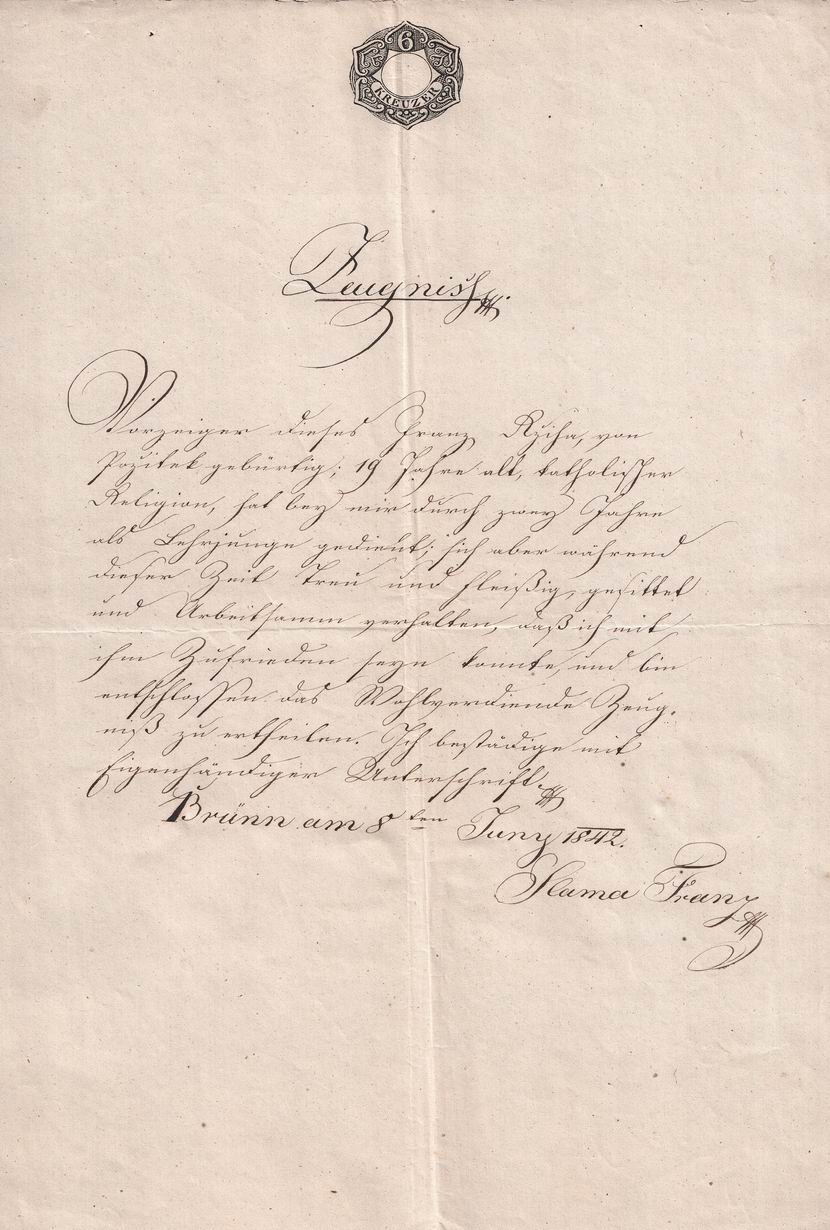 6
KREUZER
Zeugniß
Vorzeiger dieses Franz Rziha, von
gebürtig; 19 Jahre alt, katholischer
Religion, hat bey mir durch zwey Jahre
als Lehrjunge gedient; sich aber während
dieser Zeit Treu und fleißig, gesittet
und Arbeitsamm verhalten, daß ich mit
ihm Zufrieden seyn konnte, und bin
entschlossen das Wohlverdiende Zeug-
niß zu ertheilen. Ich bestädige mit
Eigenhändiger Unterschrift.
Brünn am 8ten Juny 1842.
Slama Franz